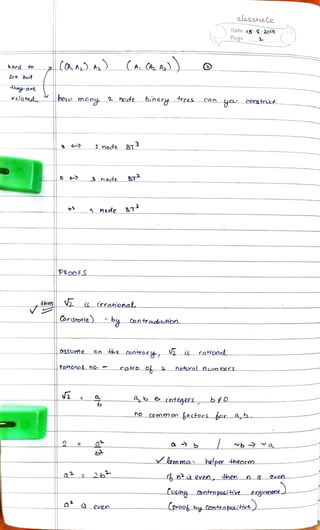 classmate
Date 18-8-2019
Page 1
((A₁ A₂) A₃) (A₁ (A₂ A₃))
hard to
see but
they are
related
how many 2 node binary trees can you construct
2 node BT
3 ↔ 3 node BT
4 node BT
PROOFS
thm √2 is irrational
(Aristotle) - by contradiction
assume on the contrary, √2 is rational
rational no. - ratio of 2 natural numbers
√2 = a/b a, b ∈ integers, b≠0
no common factors for a, b.
2 = a²/b² a → b / ~b → ~a
✓ lemma: helper theorem
a² = 2b² if n² is even, then n is even
(using contrapositive argument)
a² is even (proof by contrapositive)